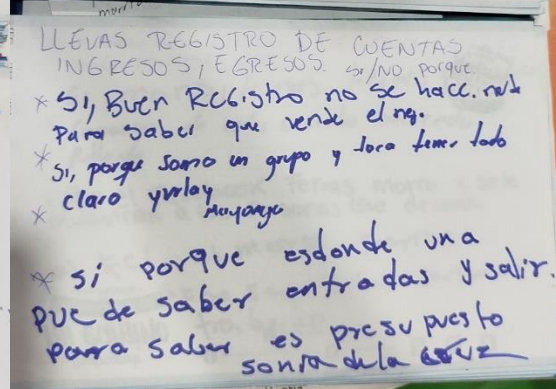 LLEVAS REGISTRO DE CUENTAS
INGRESOS, EGRESOS. SI/NO porque
* SI, Buen REGistro no se hace. nada
Para saber que vende el neg.
* SI, porque somo un grupo y toca tener todo
claro
*
* Si porque esdonde una
puede saber entradas y salir.
para saber es presupuesto
sonia de la cruz